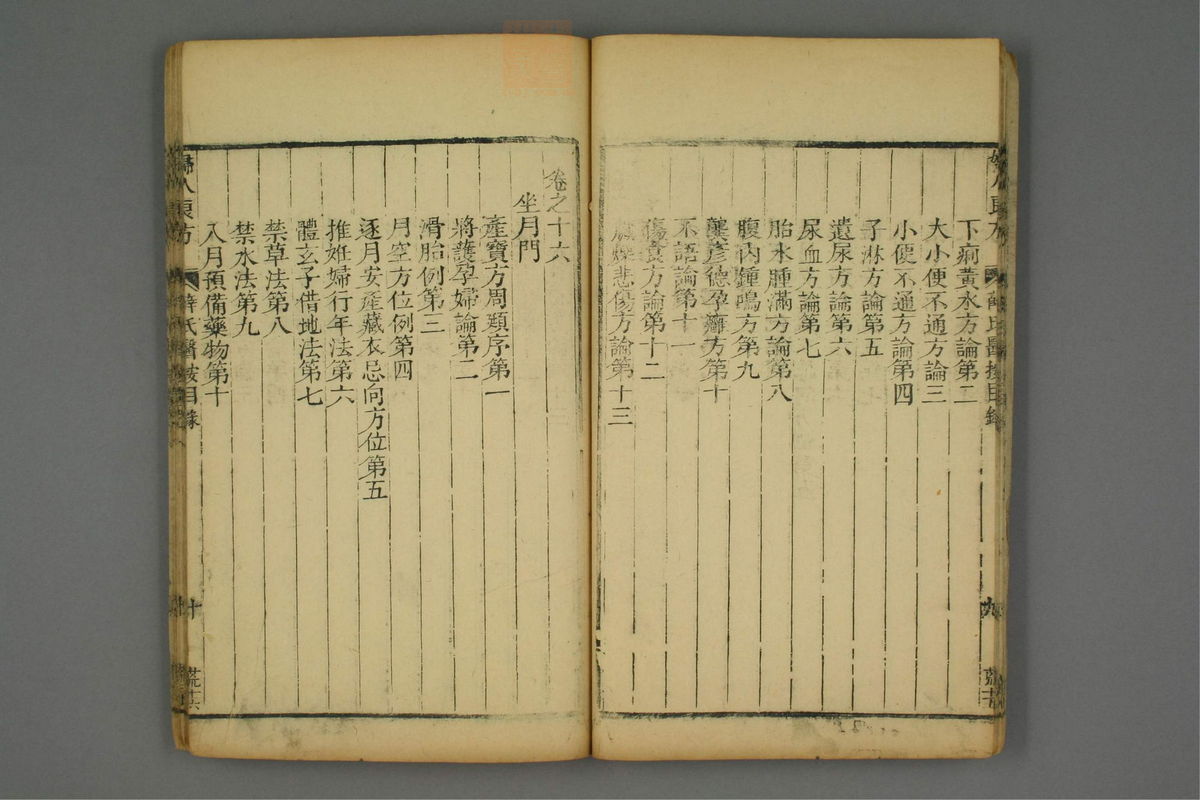 下痢黃水方論第二
大小便不通方論三
小便不通方論第四
子淋方論第五
遺尿方論第六
尿血方論第七
胎水腫滿方論第八
腹內鐘鳴方第九
龔彥德孕癰方第十
不語論第十一
傷食方論第十二
臟燥悲傷方論第十三
卷之十六
坐月門
產寶方周頲序第一
將護孕婦論第二
滑胎例第三
月空方位例第四
逐月安產藏衣忌向方位第五
推姙婦行年法第六
體玄子借地法第七
禁草法第八
禁水法第九
入月預備藥物第十
婦人良方 薛氏醫按目錄 十